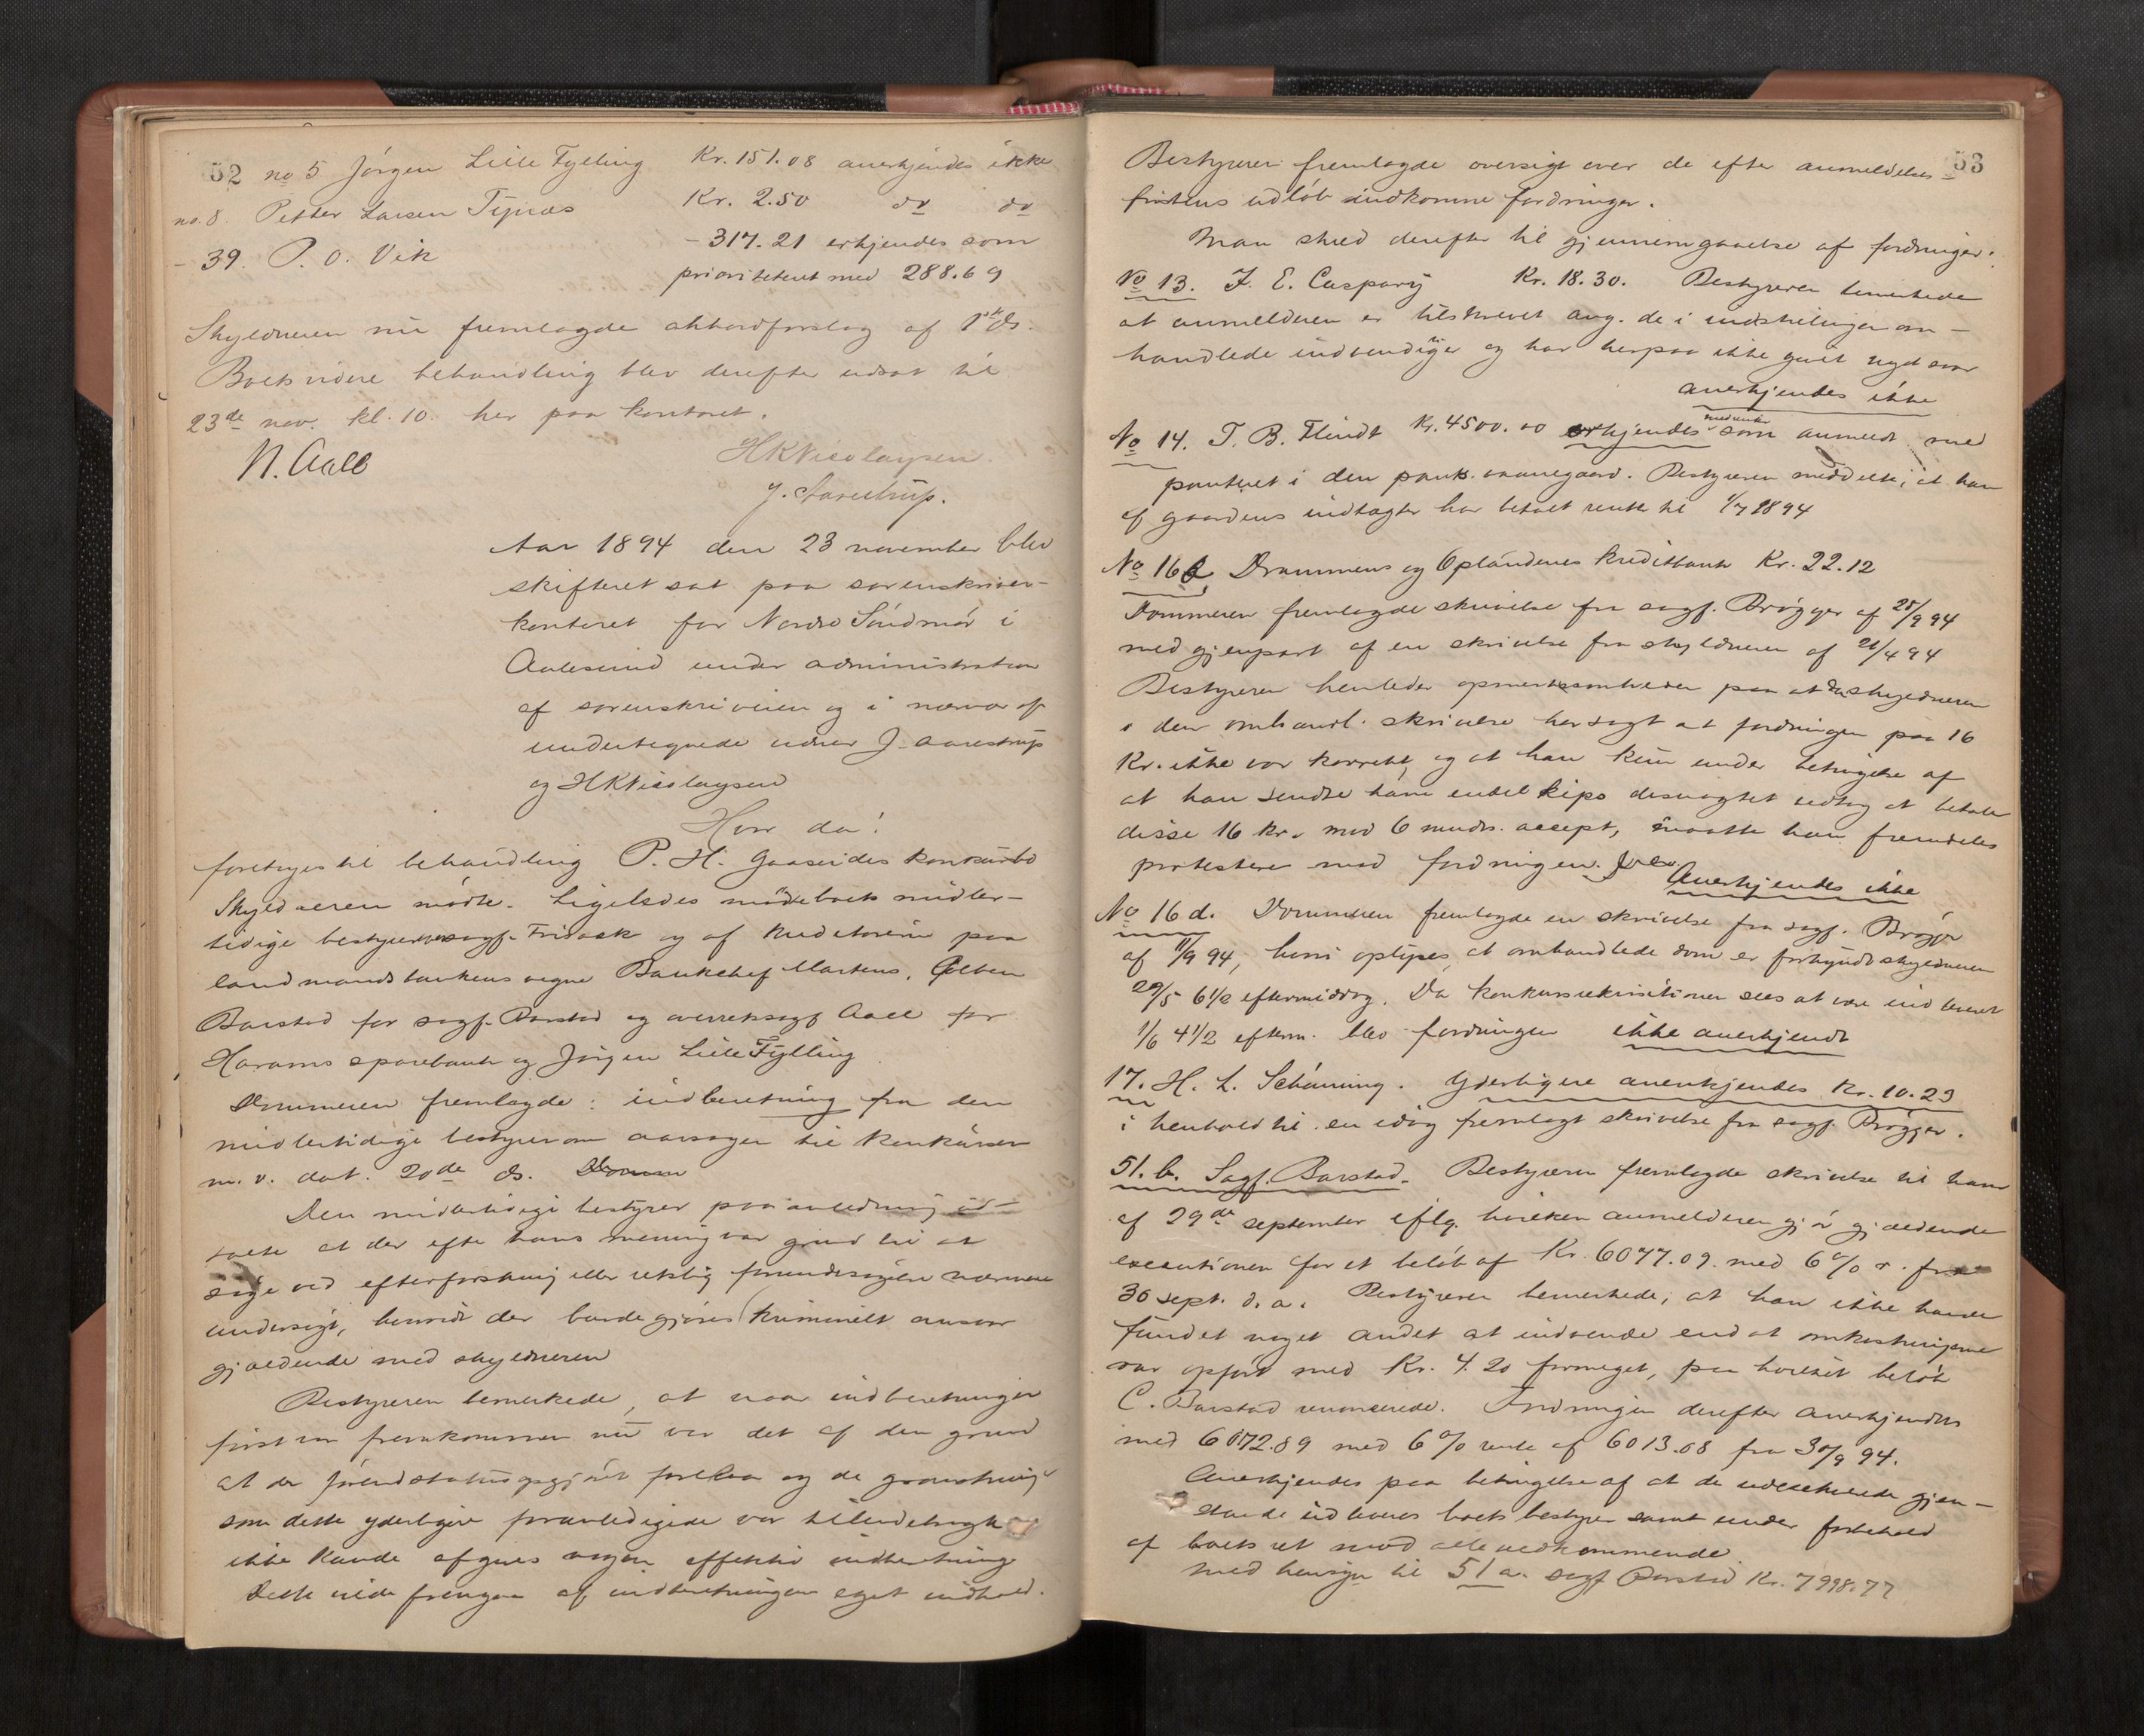 52 no 5 Jörgen Lille Fylling Kr. 151.08 anerkjendes ikke
no. 8. Petter Larsen Kr. 2.50 do do
- 39. P. O. Vik - 317.21 erkjendes som
prioriteteret med 288.69
Skyldneren nu fremlagde akkordforslag af 1ste ds.
Boets videre behandling blev derefter udsat til
23de nov. kl. 10 her paa kontoret.
N. Aall HKNicolaysen
J. Aarestrup.
Aar 1894 den 23 november blev
skifteret sat paa sorenskriver-
kontoret for Nordre Söndmör i
Aalesund under administration
af sorenskriveren og i nærvær af
undertegnede vidner J. Aarestrup
og HKNicolaysen
Hvor da:
foretoges til behandling P. H. Gaaseides konkursbo
Skyldneren mödte. Ligeledes mödte boets midler-
tidige bestyrer sagf. Frisak og af kreditorerne paa
landmandsbankens vegne Bankchef Martens,
Barstad for sagf. Barstad og overretssagf Aall for
Harams sparebank og Jörgen Lille Fylling
Dommeren fremlagde: indberetning fra den
midlertidige bestyrer om aarsagen til konkursen
m. v. dat. 20de ds.
Den midlertidige bestyrer paa anledning ud-
talte at der efter hans mening var grund til at
söge ved efterforskning eller retslig forundersögelse nærmere
undersögt, hvorvidt der burde gjöres kriminelt ansvar
gjældende mod skyldneren
Bestyreren bemerkede, at naar indberetningen
först var fremkommen nu var det af den grund
at der
som dette yderligere foranledigede var tilendebragt
ikke kunde afgives nogen effektiv indberetning
Dette vilde fremgaa af indberetningens eget indhold.
53
Bestyreren fremlagde oversigt over de efter anmeldelses-
fristens udlöb indkomne fordringer.
Man skred derefter til gjennemgaaelse af fordringer:
No 13. J. E. Caspary Kr. 18.30. Bestyreren bemerkede
at anmelderen er tilskrevet ang. de i indstillingen om-
handlede indvendinger og har herpaa ikke givet svar
anerkjendes ikke
No 14. T. B. Flindt Kr. 4500.00 erkjendes som anmeldt med
panteret i den pants. vaanegaard. Bestyreren meddelte, at han
af gaardens indtægter har betalt rente til 1/7 1894
No 16 Drammens og Oplandenes kreditbank Kr. 22.12
Dommeren fremlagde skrivelse fra sagf. Brögger af 25/9 94
med gjenpart af en skrivelse fra skyldneren af 21/4 94
Bestyreren henleder opmerksomheden paa at da skyldneren
i den omhandl. skrivelse har sagt at fordringen paa 16
Kr. ikke var korrekt, og at han kun under betingelse af
at han sendte ham endel kips desuagtet vedtog at betale
disse 16 kr. mod 6 mnds. accept, maatte han fremdeles
protestere mod fordringen.
Anerkjendes ikke
No 16 d. Dommeren fremlagde en skrivelse fra sagf. Brögger
af 11/9 94, hvori oplyses at omhandlede dom er forkyndt skyldneren
29/5 6 1/2 eftermiddag. Da konkursrekvisitionen sees at være indleveret
1/6 4 1/2 efterm. blev fordringen ikke anerkjendt
17. H. L. Schanning. Yderligere anerkjendes Kr. 10.23
i henhold til en idag fremlagt skrivelse fra sagf. Brögger.
51. b. Sagf. Barstad. Bestyreren fremlagde skrivelse til ham
af 29de september iflg. hvilken anmelderen gjör gjældende
executionen for et belöb af Kr. 6077.09. med 6% r. fra
30 sept. d. a. Bestyreren bemerkede, at han ikke havde
fundet noget andet at indvende end at omkostningerne
var opfört med Kr. 4.20 formeget, paa hvilket belöb
C. Barstad renoncerede. Fordringen derefter anerkjendes
med 6072.89 med 6% rente af 6013.08 fra 30/9 94.
Anerkjendes paa betingelse af at de udexekverede gjen-
stande udleveres boets bestyrer samt under forbehold
af boets ret mod allevedkommende
med hensyn til 51 a. sagf Barstad Kr. 7998.77